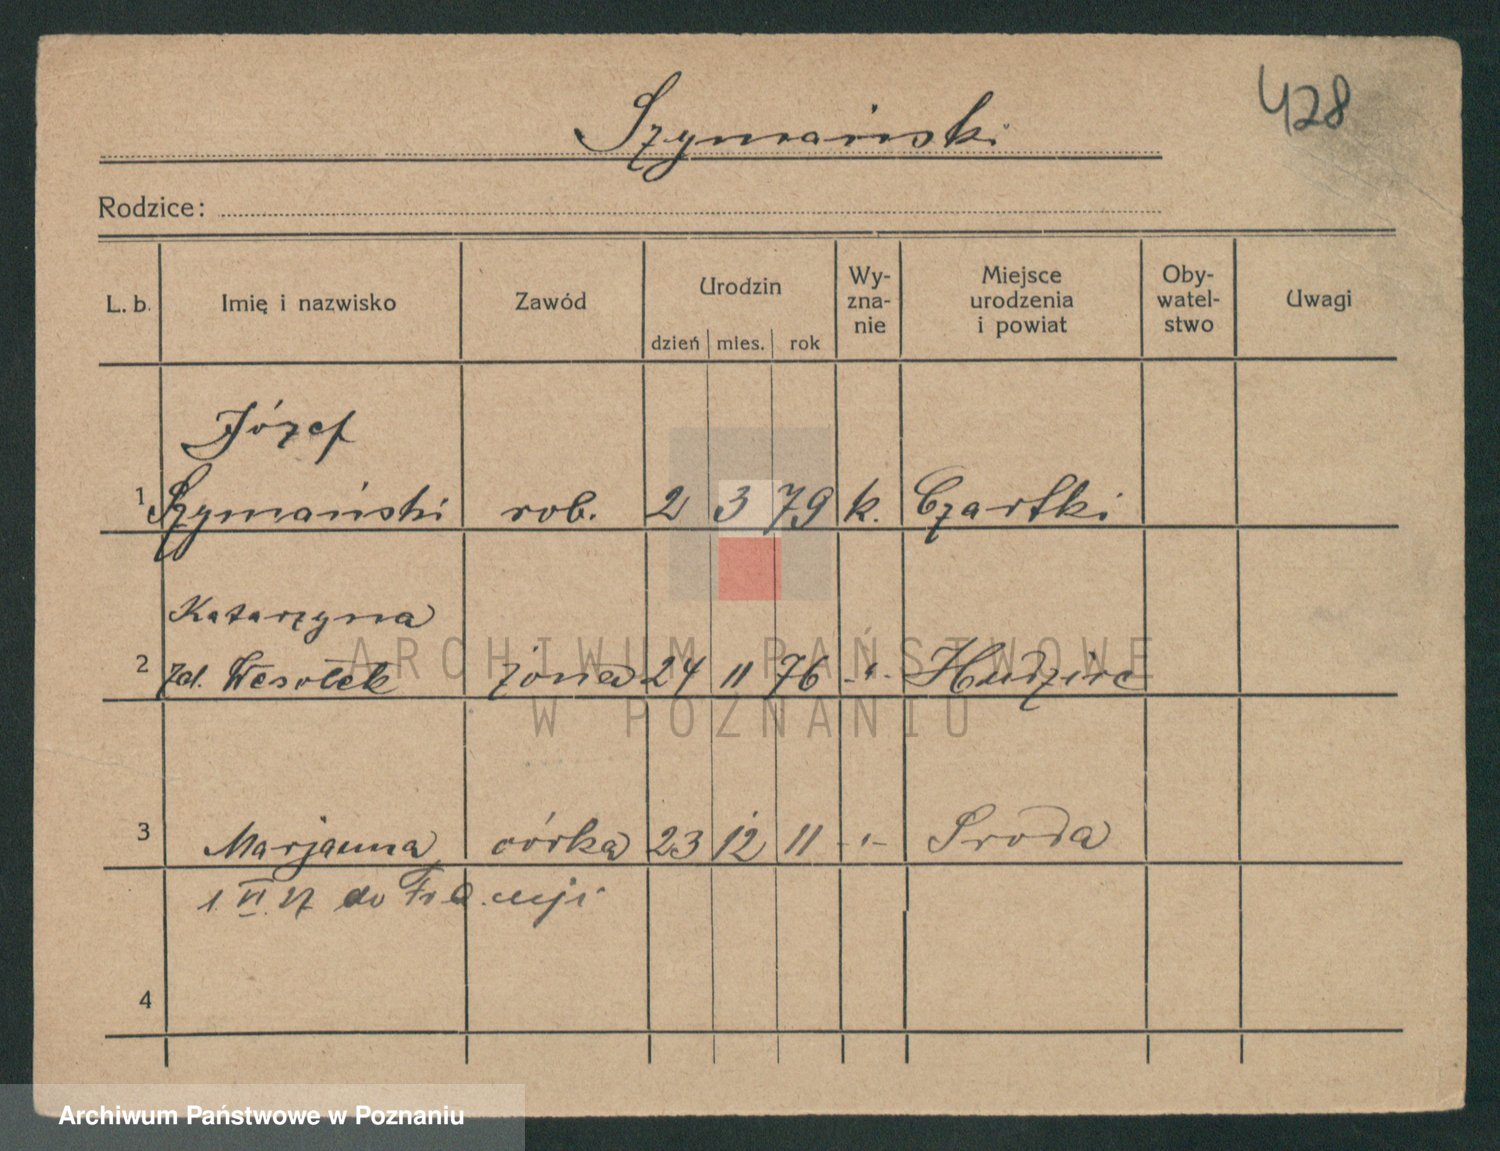 428
Szymański
Rodzice:
L. b. Imię i nazwisko Zawód Urodzin dzień mies. rok Wy- zna- nie Miejsce urodzenia i powiat Oby- watel- stwo Uwagi
Józef
1 Szymański rob. 2 3 79 k. Czartki
Katarzyna
2 zd. Wesołek żona 24 11 76 -"- 
3 Marjanna córka 23 12 11 -"- Środa
1. VI. 27 do
4
ARCHIWUM PAŃSTWOWE
W POZNANIU
Archiwum Państwowe w Poznaniu